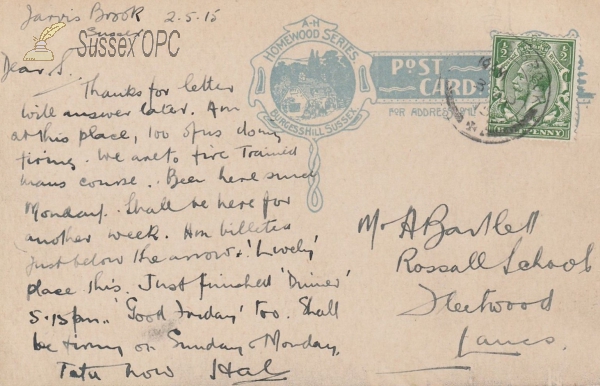 Jarvis Brook 2.5.15
Sussex
Sussex OPC
Dear S.
Thanks for letter
will answer later. Am
at this place, 100 of us doing
firing. We are to fire Trained
mans course. Been here since
Monday. Shall be here for
another week. Am billeted
just below the arrow. 'Lively'
place this. Just finished 'Dinner'
5.15pm. 'Good Friday' too. Shall
be firing on Sunday & Monday.
Tata now Hal
A-H
HOMEWOOD SERIES
BURGESS HILL SUSSEX
POST
CARD
FOR ADDRESS ONLY
HALFPENNY
Mr A Bartlett
Rossall School
Fleetwood
Lancs.